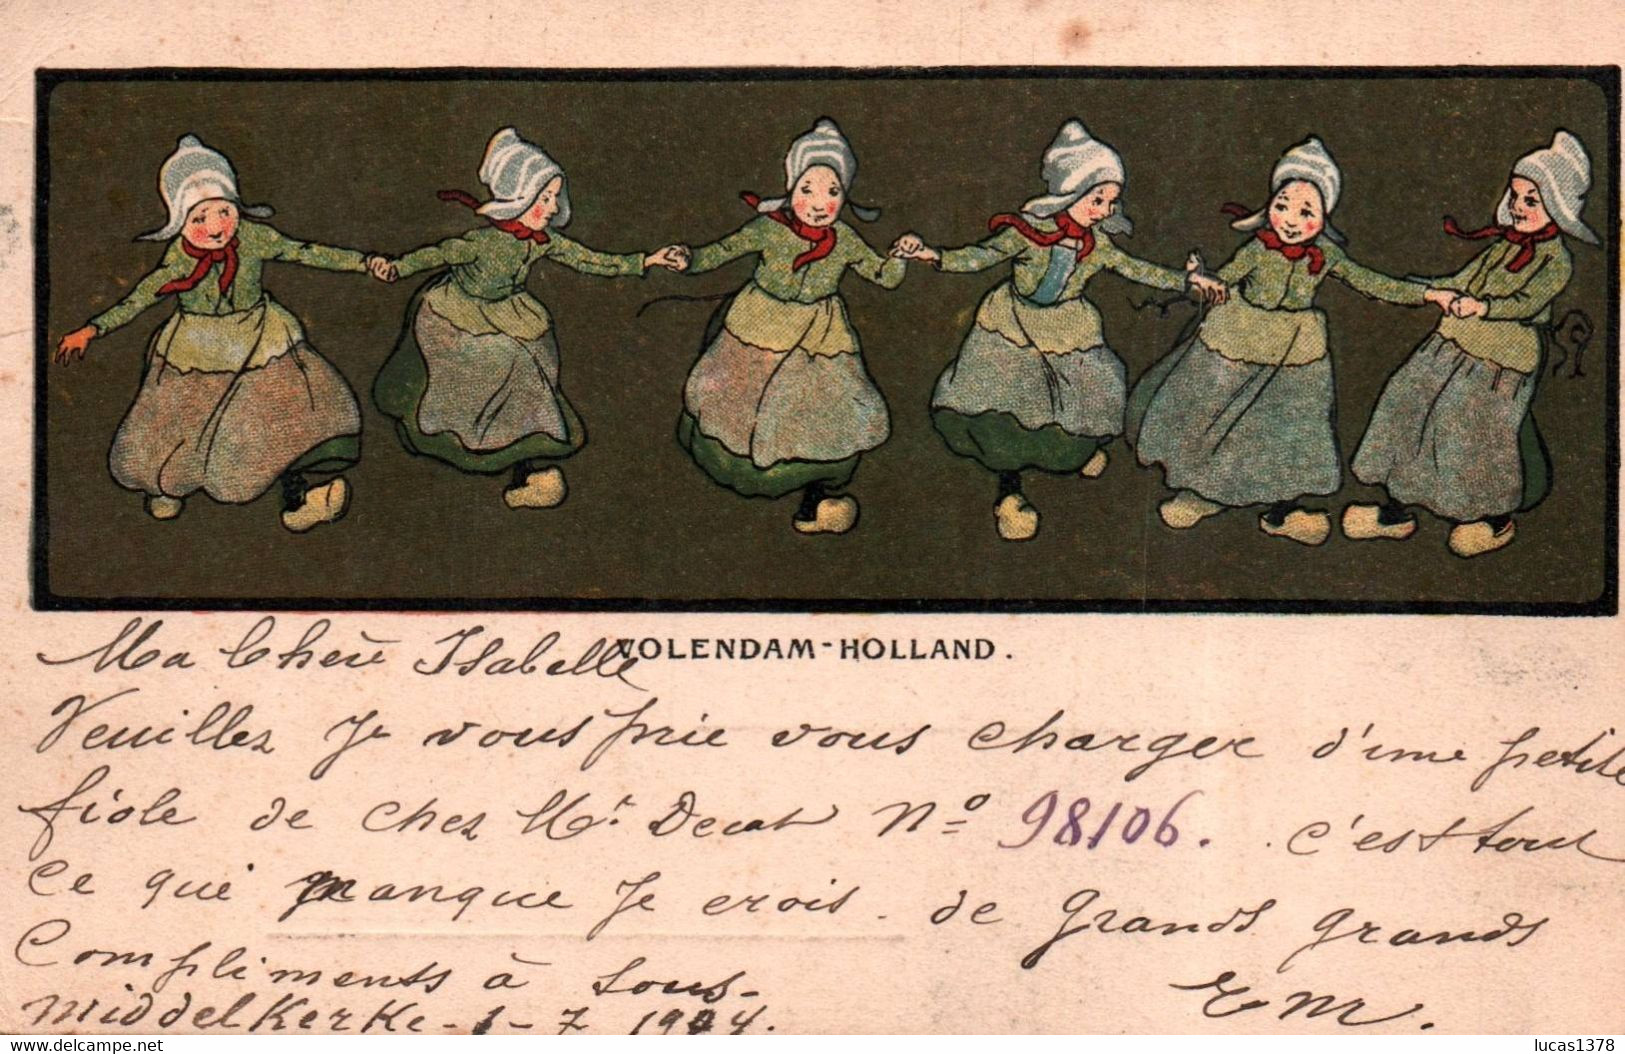 VOLENDAM-HOLLAND.
Ma Chère Isabelle
Veuillez Je vous prie vous charger d'une petite
fiole de chez Mr. Decat No 98106. c'est tout
ce que manque Je crois. de grands grands
Compliments à tous-
E M.
Middelkerke-1-7 1904.
www.delcampe.net
lucas1378